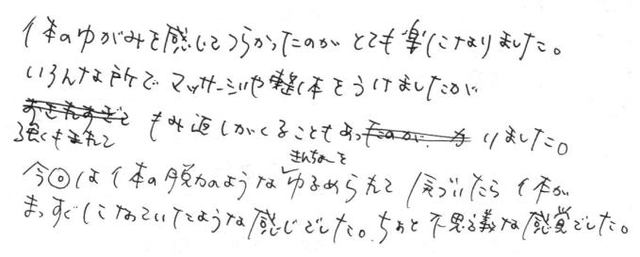 体のゆがみを感じてつらかったのが とても楽になりました。
いろんな所で マッサージや整体をうけましたが
強くもまれて もみ返しがくることもあいました。
きんちょーを
今回は体の脱力のような ゆるめられて 気づいたら 体が
まっすぐになっていたような感じでした。ちょと不思議な感覚でした。